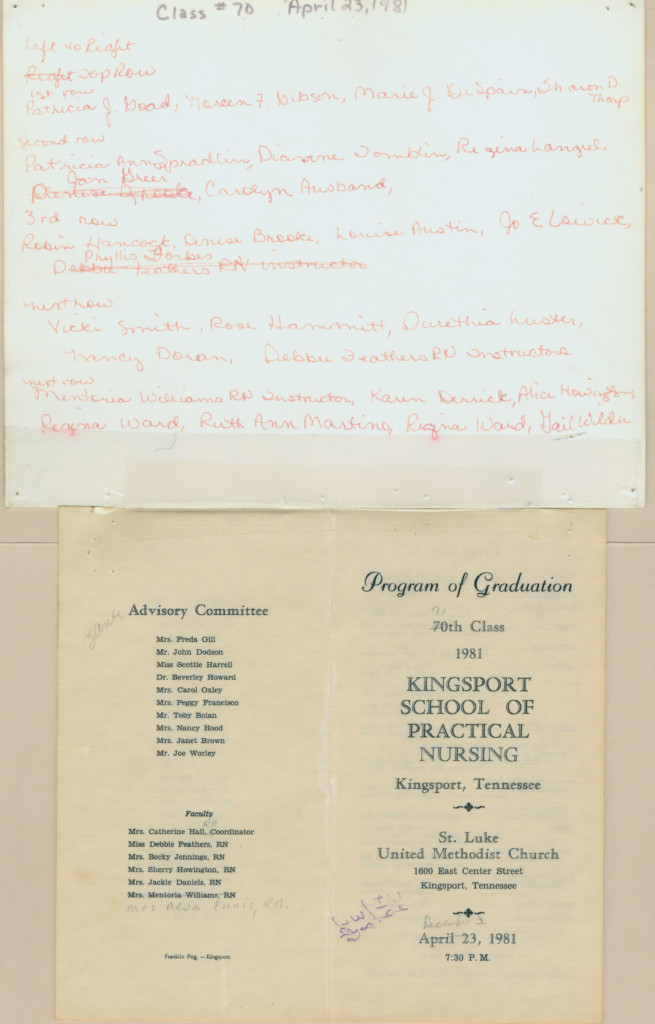 Class # 70 April 23, 1981
Left to Right
Right Top Row
1st row
Patricia J. Goad, Noreen F. Gibson, Marie J. DeSpain, Sharon D.
Thorp
second row
Patricia Ann Spradlin, Dianne Tomblin, Regina Langrel,
Jan Greer
Denise Brooke, Carolyn Ausband,
3rd row
Robin Hancock, Denise Brooke, Louise Austin, Jo E Lowick,
Phyllis Forbes
Debbie Feathers RN instructor
next row
Vicki Smith, Rose Hammitt, Durethia Luster,
Nancy Doran, Debbie Feathers RN Instructors
next row
Mentoria Williams RN Instructor, Karen Derrick, Alice Howington,
Regina Ward, Ruth Ann Martino, Regina Ward, Gail Wilder
same
Advisory Committee
Mrs. Freda Gill
Mr. John Dodson
Miss Scottie Harrell
Dr. Beverley Howard
Mrs. Carol Oxley
Mrs. Peggy Francisco
Mr. Toby Bolan
Mrs. Nancy Hood
Mrs. Janet Brown
Mr. Joe Worley
Faculty
RN
Mrs. Catherine Hall, Coordinator
Miss Debbie Feathers, RN
Mrs. Becky Jennings, RN
Mrs. Sherry Howington, RN
Mrs. Jackie Daniels, RN
Mrs. Mentoria Williams, RN
Mrs Alva Ennis, RN.
Franklin Ptg. – Kingsport
Program of Graduation
71
70th Class
1981
KINGSPORT
SCHOOL OF
PRACTICAL
NURSING
Kingsport, Tennessee
St. Luke
United Methodist Church
1600 East Center Street
Kingsport, Tennessee
December 3
April 23, 1981
7:30 P.M.